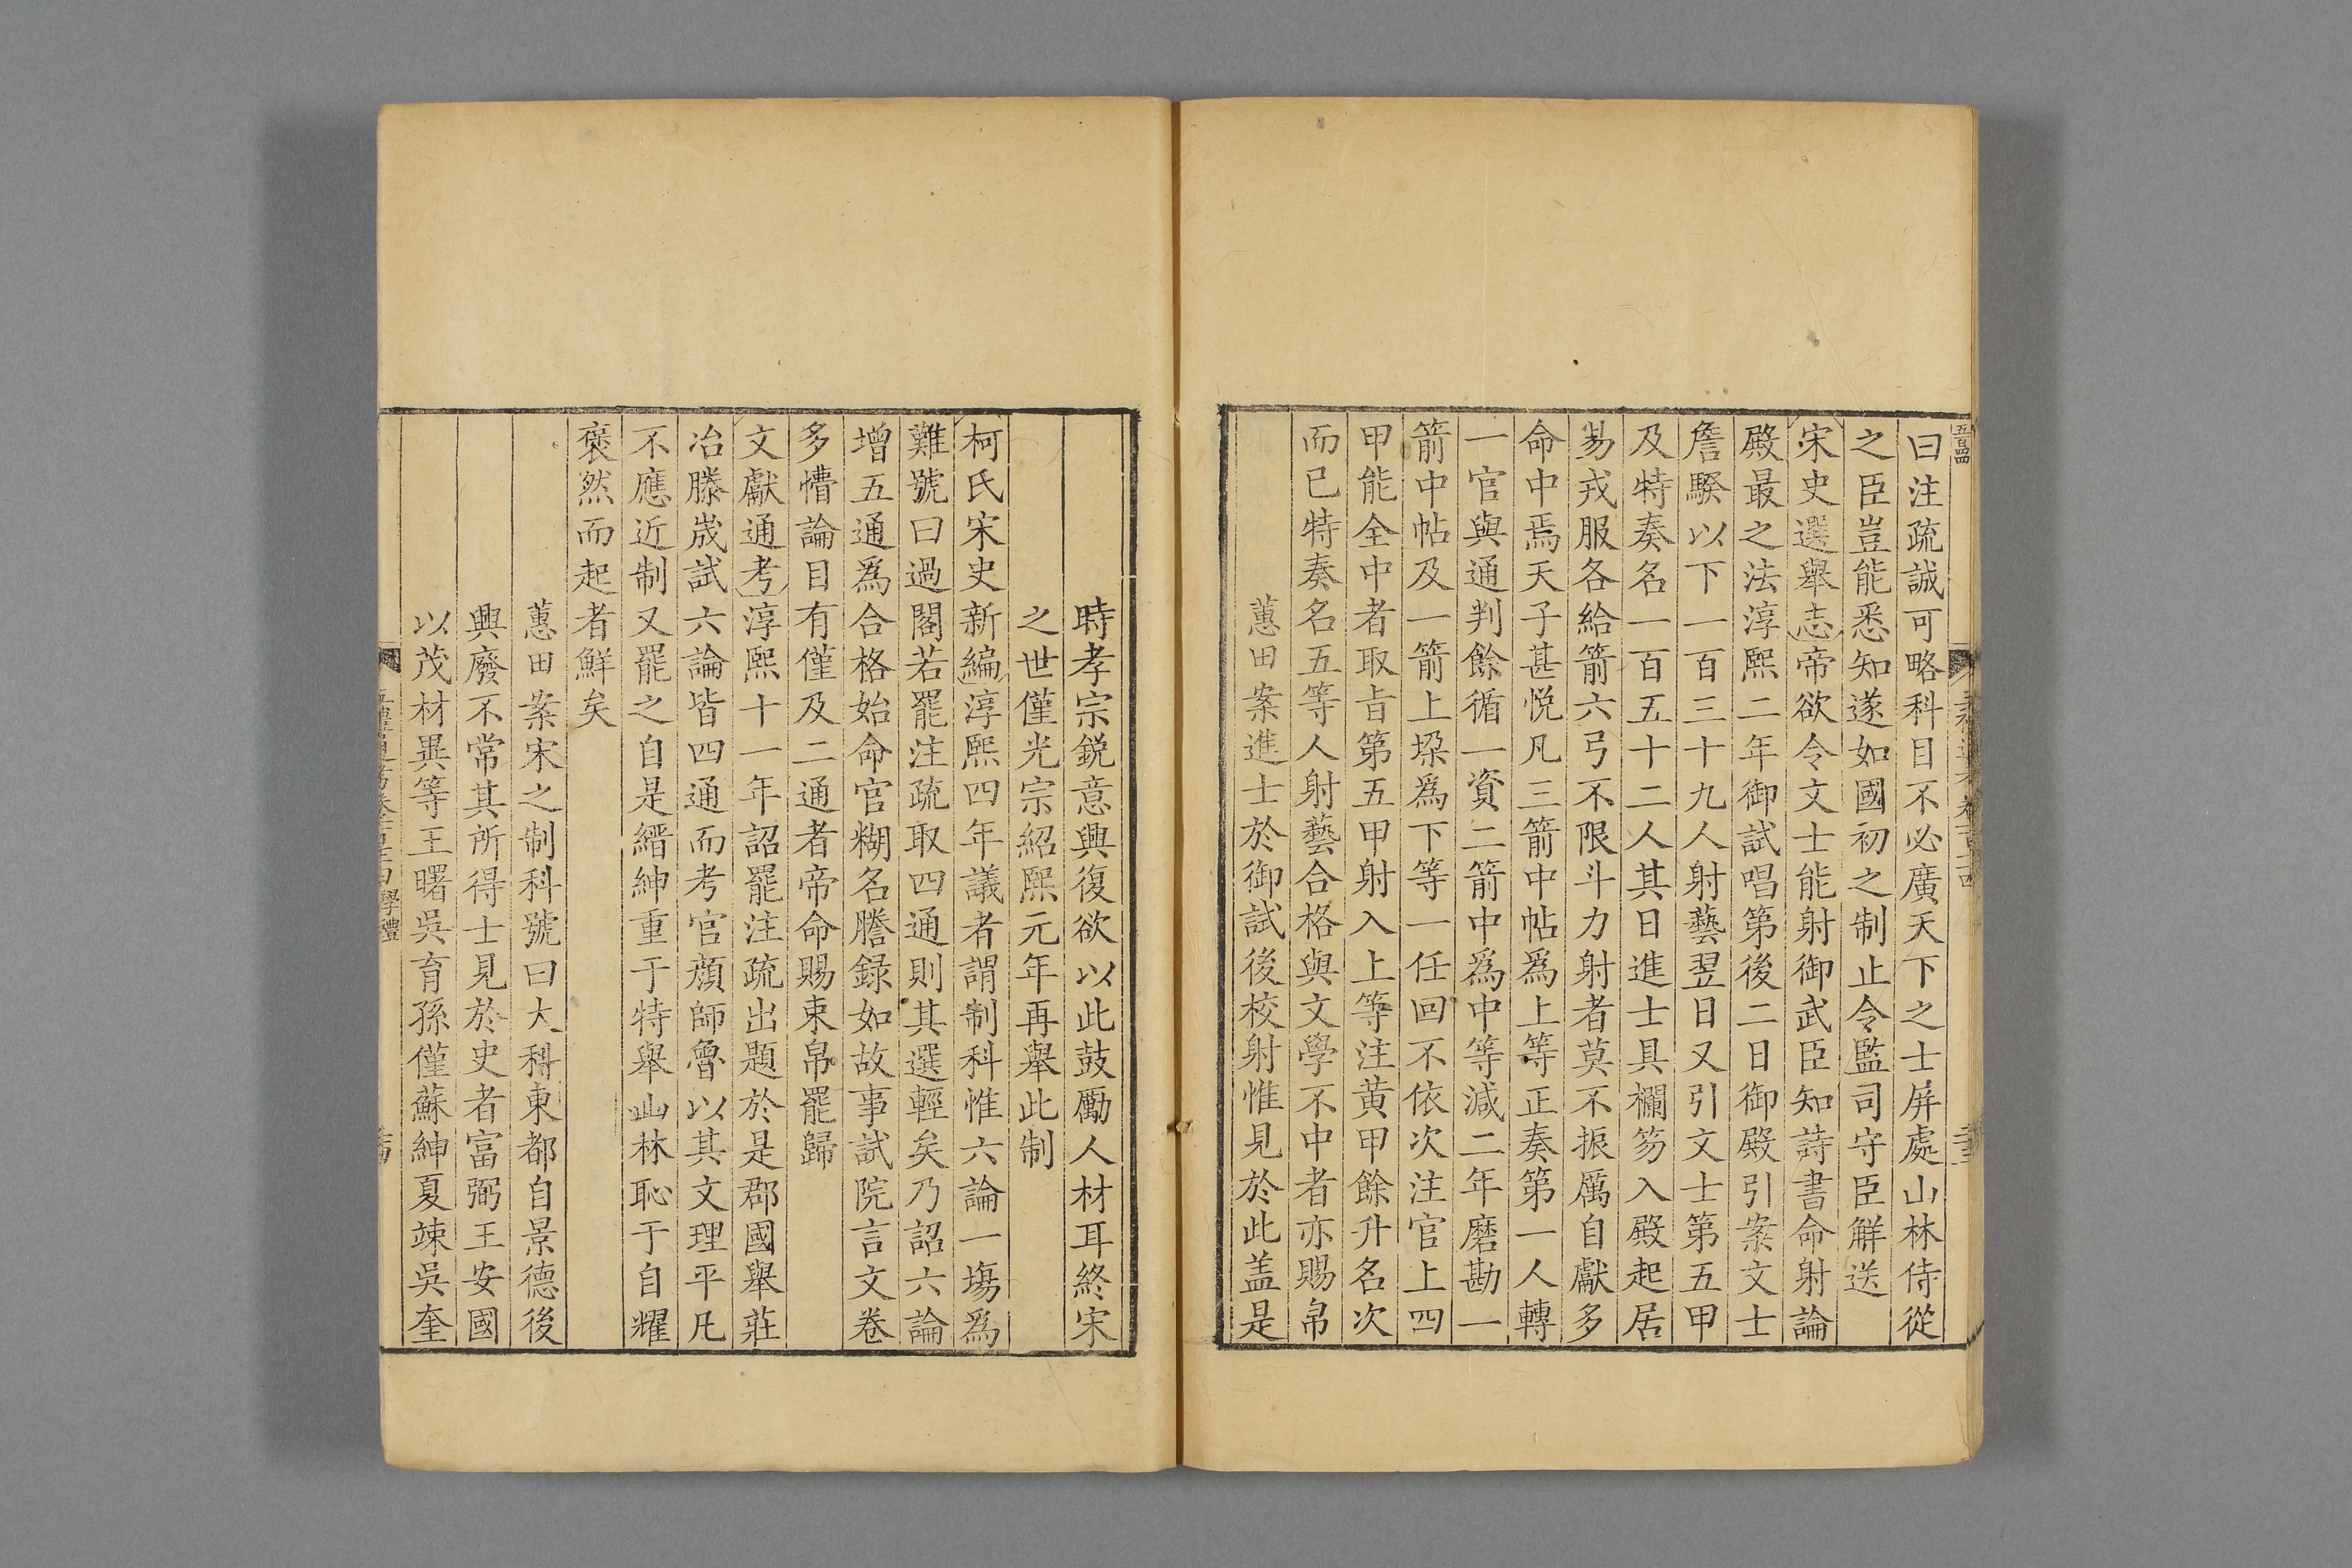 曰注疏誠可略科目不必廣天下之士屏處山林侍從
之臣豈能悉知遂如國初之制止令監司守臣解送
宋史選舉志帝欲令文士能射御武臣知詩書命射論
殿最之法淳熙二年御試唱第後二日御殿引案文士
詹騤以下一百三十九人射藝翌日又引文士第五甲
及特奏名一百五十二人其日進士具襴笏入殿起居
易戎服各給箭六弓不限斗力射者莫不振厲自獻多
命中焉天子甚悅凡三箭中帖爲上等正奏第一人轉
一官與通判餘循一資二箭中爲中等減二年磨勘一
箭中帖及一箭上垜爲下等一任回不依次注官上四
甲能全中者取旨第五甲射入上等注黃甲餘升名次
而已特奏名五等人射藝合格與文學不中者亦賜帛
蕙田案進士於御試後校射惟見於此盖是
時孝宗銳意興復欲以此鼓勵人材耳終宋
之世僅光宗紹熙元年再舉此制
柯氏宋史新編淳熙四年議者謂制科惟六論一場爲
難號曰過閣若罷注疏取四通則其選輕矣乃詔六論
增五通爲合格始命官糊名謄録如故事試院言文卷
多懵論目有僅及二通者帝命賜束帛罷歸
文獻通考淳熙十一年詔罷注疏出題於是郡國舉莊
冶滕嵗試六論皆四通而考官顔師魯以其文理平凡
不應近制又罷之自是縉紳重于特舉山林恥于自耀
褎然而起者鮮矣
蕙田案宋之制科號曰大科東都自景德後
興廢不常其所得士見於史者富弼王安國
以茂材異等王曙吳育孫僅蘇紳夏竦吳奎